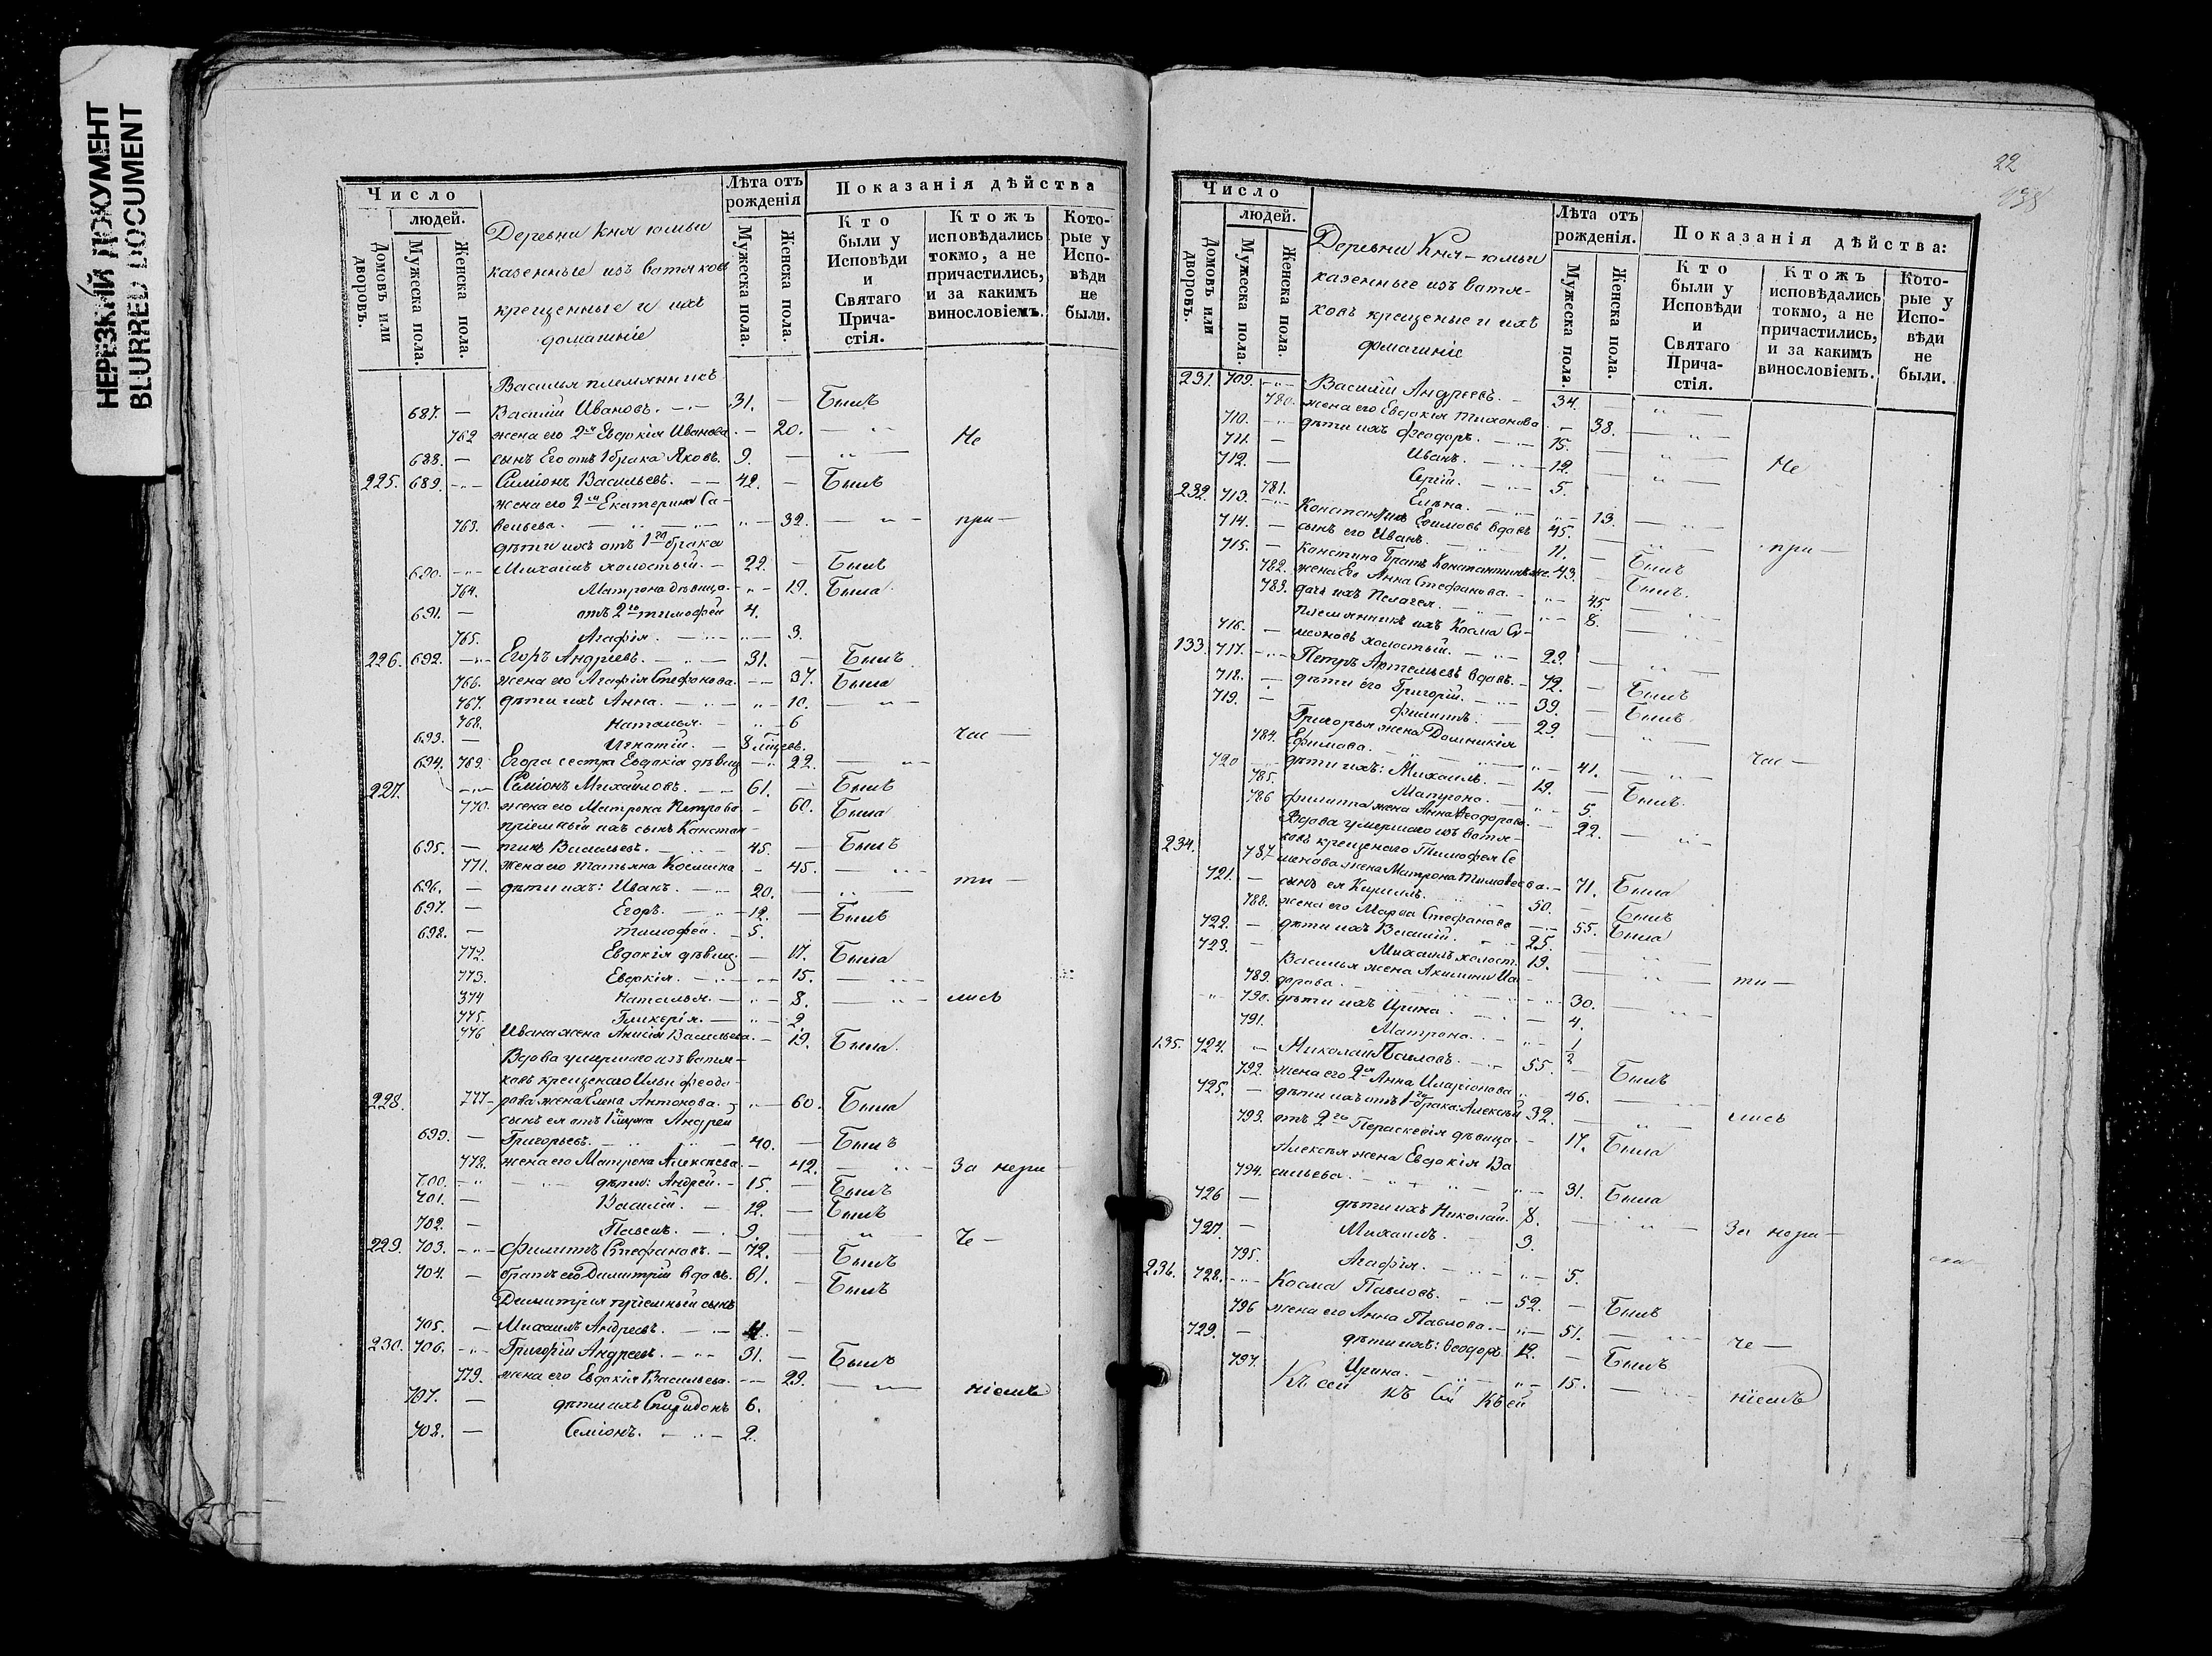 НЕРЕЗКИЙ ДОКУМЕНТ
BLURRED DOCUMENT
Число
людей.
Домовъ или дворовъ.
Мужеска пола.
Женска пола.
Деревни Кня юмьи
казенные изъ вотяковъ
крещенные и ихъ
домашніе
Лѣта отъ рожденія
Мужеска пола.
Женска пола.
Показанія дѣйства
Кто были у Исповѣди и Святаго Прича-стія.
Ктожъ исповѣдались токмо, а не причастились, и за какимъ винословіемъ.
Кото-рые у Испо-вѣди не были.
Василья племянникъ
687. — Василій Ивановъ. — 31. — Былъ
762 жена его 2я Евдокія Иванова — 20. — Не
688. — сынъ Его отъ 1 брака Яковъ. 9. —
225. 689. Симіонъ Васильевъ. — 42. — Былъ
жена его 2я Екатерина Са-
763. вельева. — 32. — при —
дѣти ихъ отъ 1го брака
690. Михаилъ холостый. — 22. — Былъ
764. Матрона дѣвица. — 19. Была
691. — отъ 2го Тимофей 4.
765. Агафія. — 3.
226. 692. Егоръ Андреевъ. — 31. — Былъ
766. жена его Агафія Стефанова. — 37. Была
767. дѣти ихъ Анна. — 10. —
768. Наталья. — 6
693. — Игнатій. — 8 мѣцевъ. час —
694. 769. Егора сестра Евдокія дѣвиц — 22. —
227. Семіонъ Михайловъ. — 61. — Былъ
770. жена его Матрона Петрова — 60. Была
пріемный ихъ сынъ Констан-
695. — тинъ Васильевъ. — 45. — Былъ
771. жена его Татьяна Космина — 45. —
696. — дѣти ихъ: Иванъ. — 20. — ти —
697. — Егоръ. — 12. — Былъ
698. — Тимофей. — 5.
772. Евдокія дѣвиц. — 17. Была
773. Евдокія. — 15. —
374 Наталья. — 8. — лись
775. Гликерія. — 2
776 Ивана жена Анисія Васильева. — 19. Была.
Вдова умершаго изъ вотя-
ковъ крещенаго Ильи Феодо-
228. 777 рова жена Елена Антонова. — 60. Была
сынъ ея отъ 1го мужа Андрей
699. — Григорьевъ. — 40. — Былъ
778. жена его Матрона Алексѣева — 42. — За нера
700. дѣти: Андрей. — 15. — Былъ
701. — Василій. — 12. — Былъ
702. — Павелъ. — 9. —
229. 703. Филиппъ Стефановъ. — 72. Былъ че —
704. — братъ его Димитрій вдовъ. 61. — Былъ
Димитрія пріемный сынъ
705. — Михаилъ Андреевъ. — 4. —
230. 706. Григорій Андреевъ. — 31. — Былъ
779. жена его Евдокія Васильева. — 29. — ніемъ
707. — дѣти ихъ Спиридонъ 6.
708. — Семіонъ. — 2.
22
938
Число
людей.
Домовъ или дворовъ.
Мужеска пола.
Женска пола.
Деревни Кня-юмьи
казенные изъ вотя-
ковъ крещеные и ихъ
домашніе
Лѣта отъ рожденія.
Мужеска пола.
Женска пола.
Показанія дѣйства:
Кто были у Исповѣди и Святаго Прича-стія.
Ктожъ исповѣдались токмо, а не причастились, и за какимъ винословіемъ.
Кото-рые у Испо-вѣди не были.
231. 709. Василій Андреевъ. — 34. —
780. жена его Евдокія Тихонова — 38. —
710. дѣти ихъ Феодоръ. — 15. —
711. — Иванъ. — 12. — Не
712. — Сергій. — 5.
781. Елена. — 13. —
232. 713. Константинъ Ефимовъ вдовъ 45. —
714. — сынъ его Иванъ. — 11. — Былъ при —
715. — Констина братъ Константинъ же. 43. — Былъ.
782. жена Его Анна Стефанова. — 45. —
783. дочь ихъ Пелагея. — 8. —
племянникъ ихъ Косма Си-
716. — меоновъ холостый. — 22. —
133. 717. Петръ Антельевъ вдовъ. — 72. — Былъ
718. — дѣти его Григорій. — 39. — Былъ
719. — Филиппъ. — 29. —
Григорья жена Домникія
784. Ефимова. — 41. — час —
720 дѣти ихъ: Михаилъ. — 12. — Былъ.
785. Матрона. — 5.
786 Филиппа жена Анна Феодорова. — 22. —
Вдова умершаго изъ вотя-
ковъ крещенаго Тимофея Се
234. 787 менова жена Матрона Тимофеева. — 71. Была
721. — сынъ ея Кириллъ. 50. Былъ
788. жена его Марѳа Стефанова — 55. Была
722. — дѣти ихъ Василій. — 25. —
723. — Михаилъ холост. 19. —
Василья жена Акилина Иси-
789. дорова. — 30. — ти —
790. дѣти ихъ Ирина. — 4.
791. Матрона. — 1/2
135. 724. Николай Павловъ. — 55. — Былъ
792. жена его 2я Анна Иларіонова 46. —
725. — дѣти ихъ отъ 1го брака: Алексѣй 32. — лись
793. отъ 2го Пераскевія дѣвица — 17. Была
Алексѣя жена Евдокія Ва
794. сильева. — 31. Была
726 — дѣти ихъ Николай. 8. —
727. — Михаилъ. 3. За нера —
795. Агафія. — 5.
236. 728. Косма Павловъ. — 52. — Былъ
796 жена его Анна Павлова. — 51. —
729. — дѣти ихъ: Ѳеодоръ. 12. — Былъ че —
797. Ирина. — 15. — ніемъ
Къ сей къ Сей Къ ей